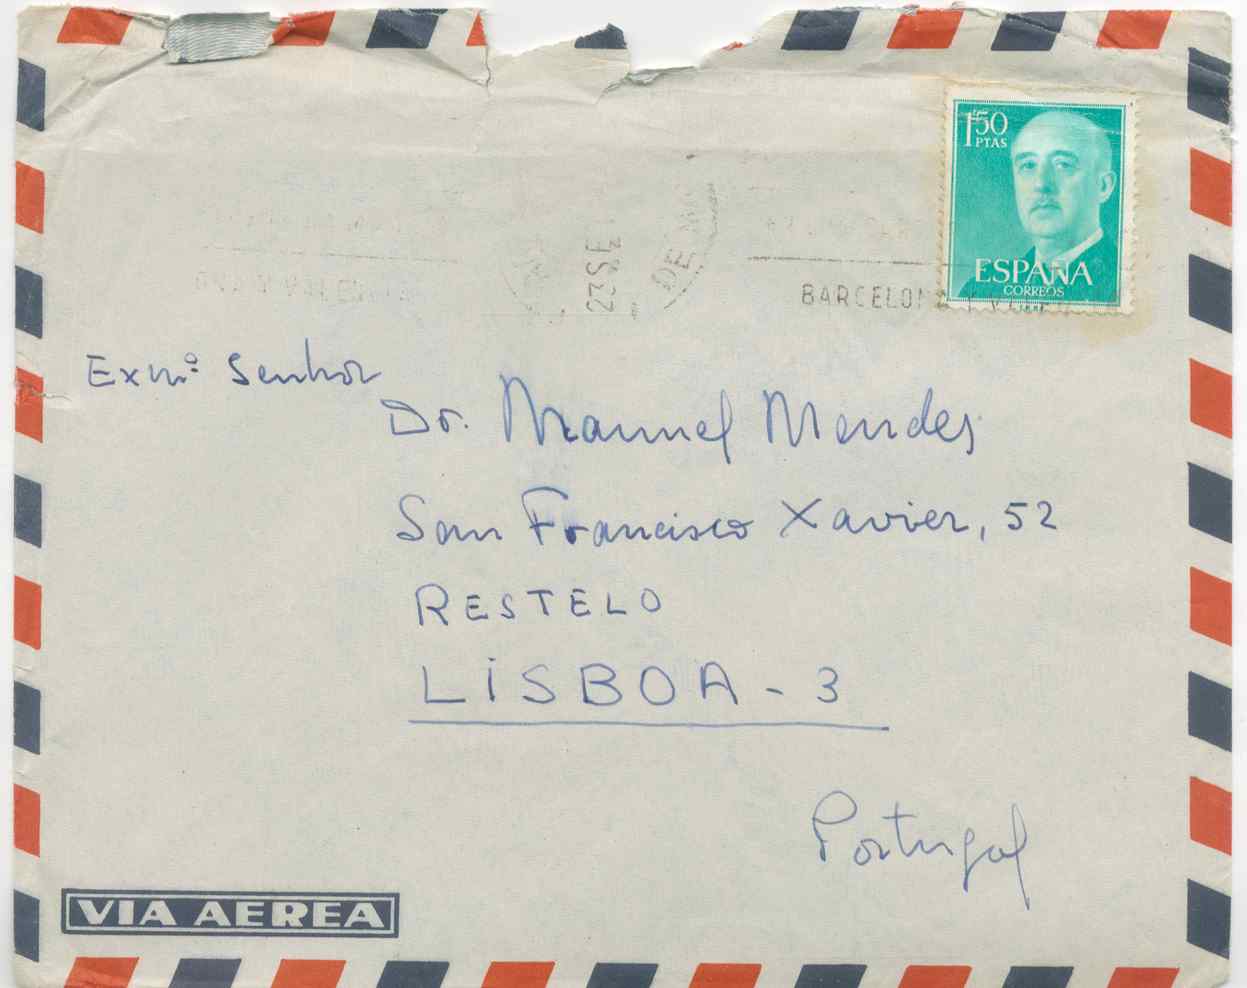 1'50
PTAS
ESPAÑA
CORREOS
23 SE
DE
BARCELONA Y
Exmº Senhor
Dr. Manuel Mendes
San Francisco Xavier, 52
RESTELO
LISBOA - 3
Portugal
VIA AEREA